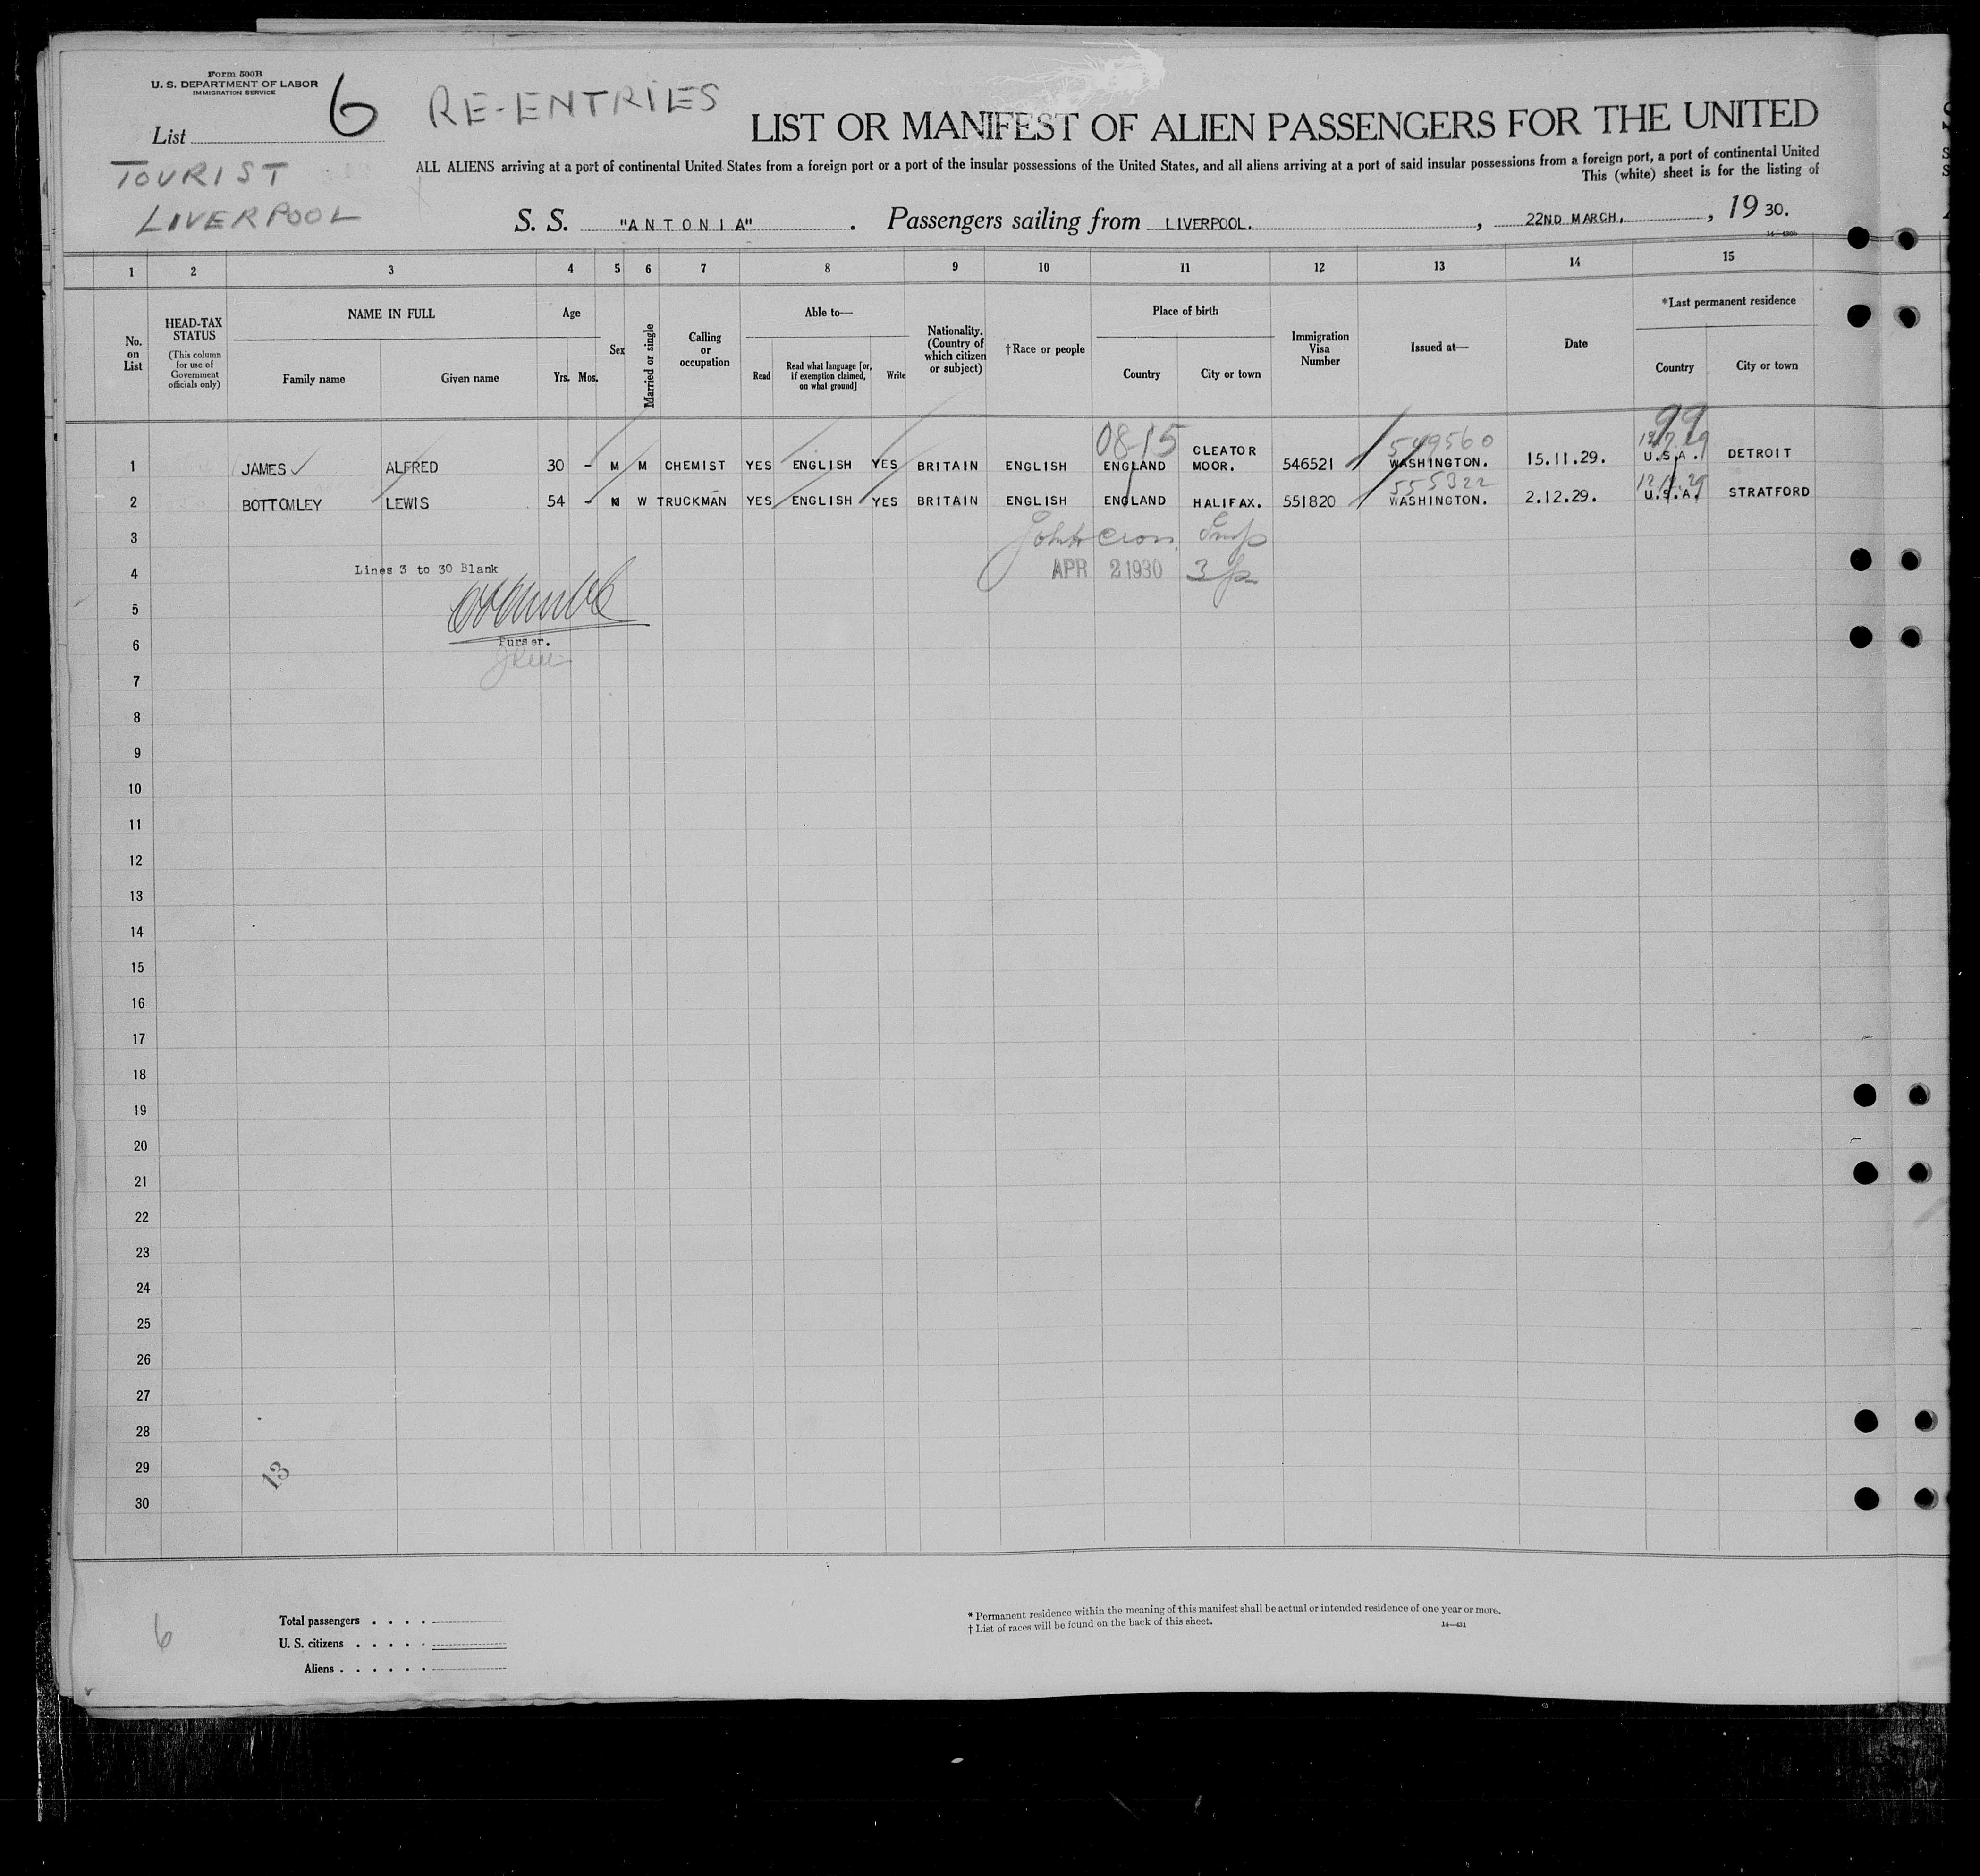 Form 500B
U. S. DEPARTMENT OF LABOR
IMMIGRATION SERVICE
List 6
RE-ENTRIES
TOURIST
LIVERPOOL
LIST OR MANIFEST OF ALIEN PASSENGERS FOR THE UNITED
ALL ALIENS arriving at a port of continental United States from a foreign port or a port of the insular possessions of the United States, and all aliens arriving at a port of said insular possessions from a foreign port, a port of continental United
This (white) sheet is for the listing of
S. S. "ANTONIA". Passengers sailing from LIVERPOOL., 22ND MARCH, , 19 30.
1 2 3 4 5 6 7 8 9 10 11 12 13 14 15
No. on List
HEAD-TAX STATUS
(This column for use of Government officials only)
NAME IN FULL
Family name
Given name
Age
Yrs. Mos.
Sex
Married or single
Calling or occupation
Able to—
Read
Read what language [or, if exemption claimed, on what ground]
Write
Nationality. (Country of which citizen or subject)
†Race or people
Place of birth
Country
City or town
Immigration Visa Number
Issued at—
Date
*Last permanent residence
Country
City or town
0815 549560 99
1 JAMES ALFRED 30 - M M CHEMIST YES ENGLISH YES BRITAIN ENGLISH ENGLAND CLEATOR MOOR. 546521 WASHINGTON. 15.11.29. U.S.A. DETROIT
555322
2 BOTTOMLEY LEWIS 54 - M W TRUCKMAN YES ENGLISH YES BRITAIN ENGLISH ENGLAND HALIFAX. 551820 WASHINGTON. 2.12.29. U.S.A. STRATFORD
3
4 Lines 3 to 30 Blank APR 2 1930
5
6 Purser.
7
8
9
10
11
12
13
14
15
16
17
18
19
20
21
22
23
24
25
26
27
28
29 13
30
6
Total passengers . . . .
U. S. citizens . . . . .
Aliens . . . . . .
* Permanent residence within the meaning of this manifest shall be actual or intended residence of one year or more.
† List of races will be found on the back of this sheet.